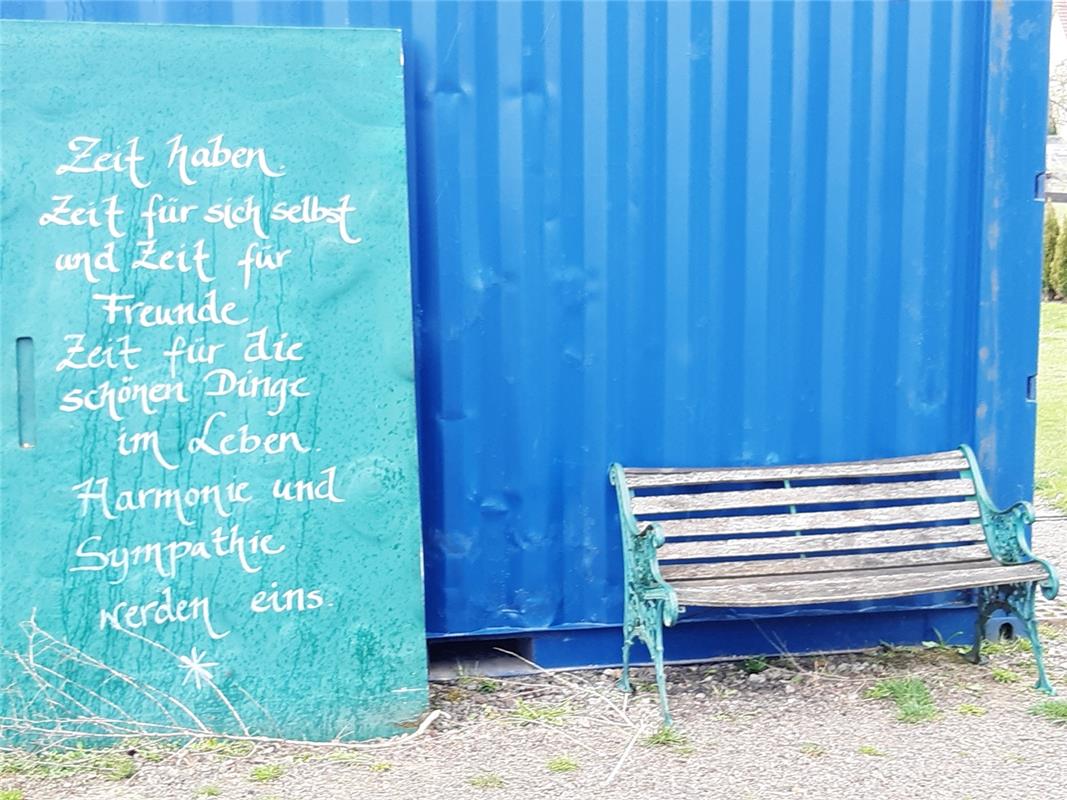 Zeit haben.
Zeit für sich selbst
und Zeit für
Freunde
Zeit für die
schönen Dinge
im Leben.
Harmonie und
Sympathie
werden eins.